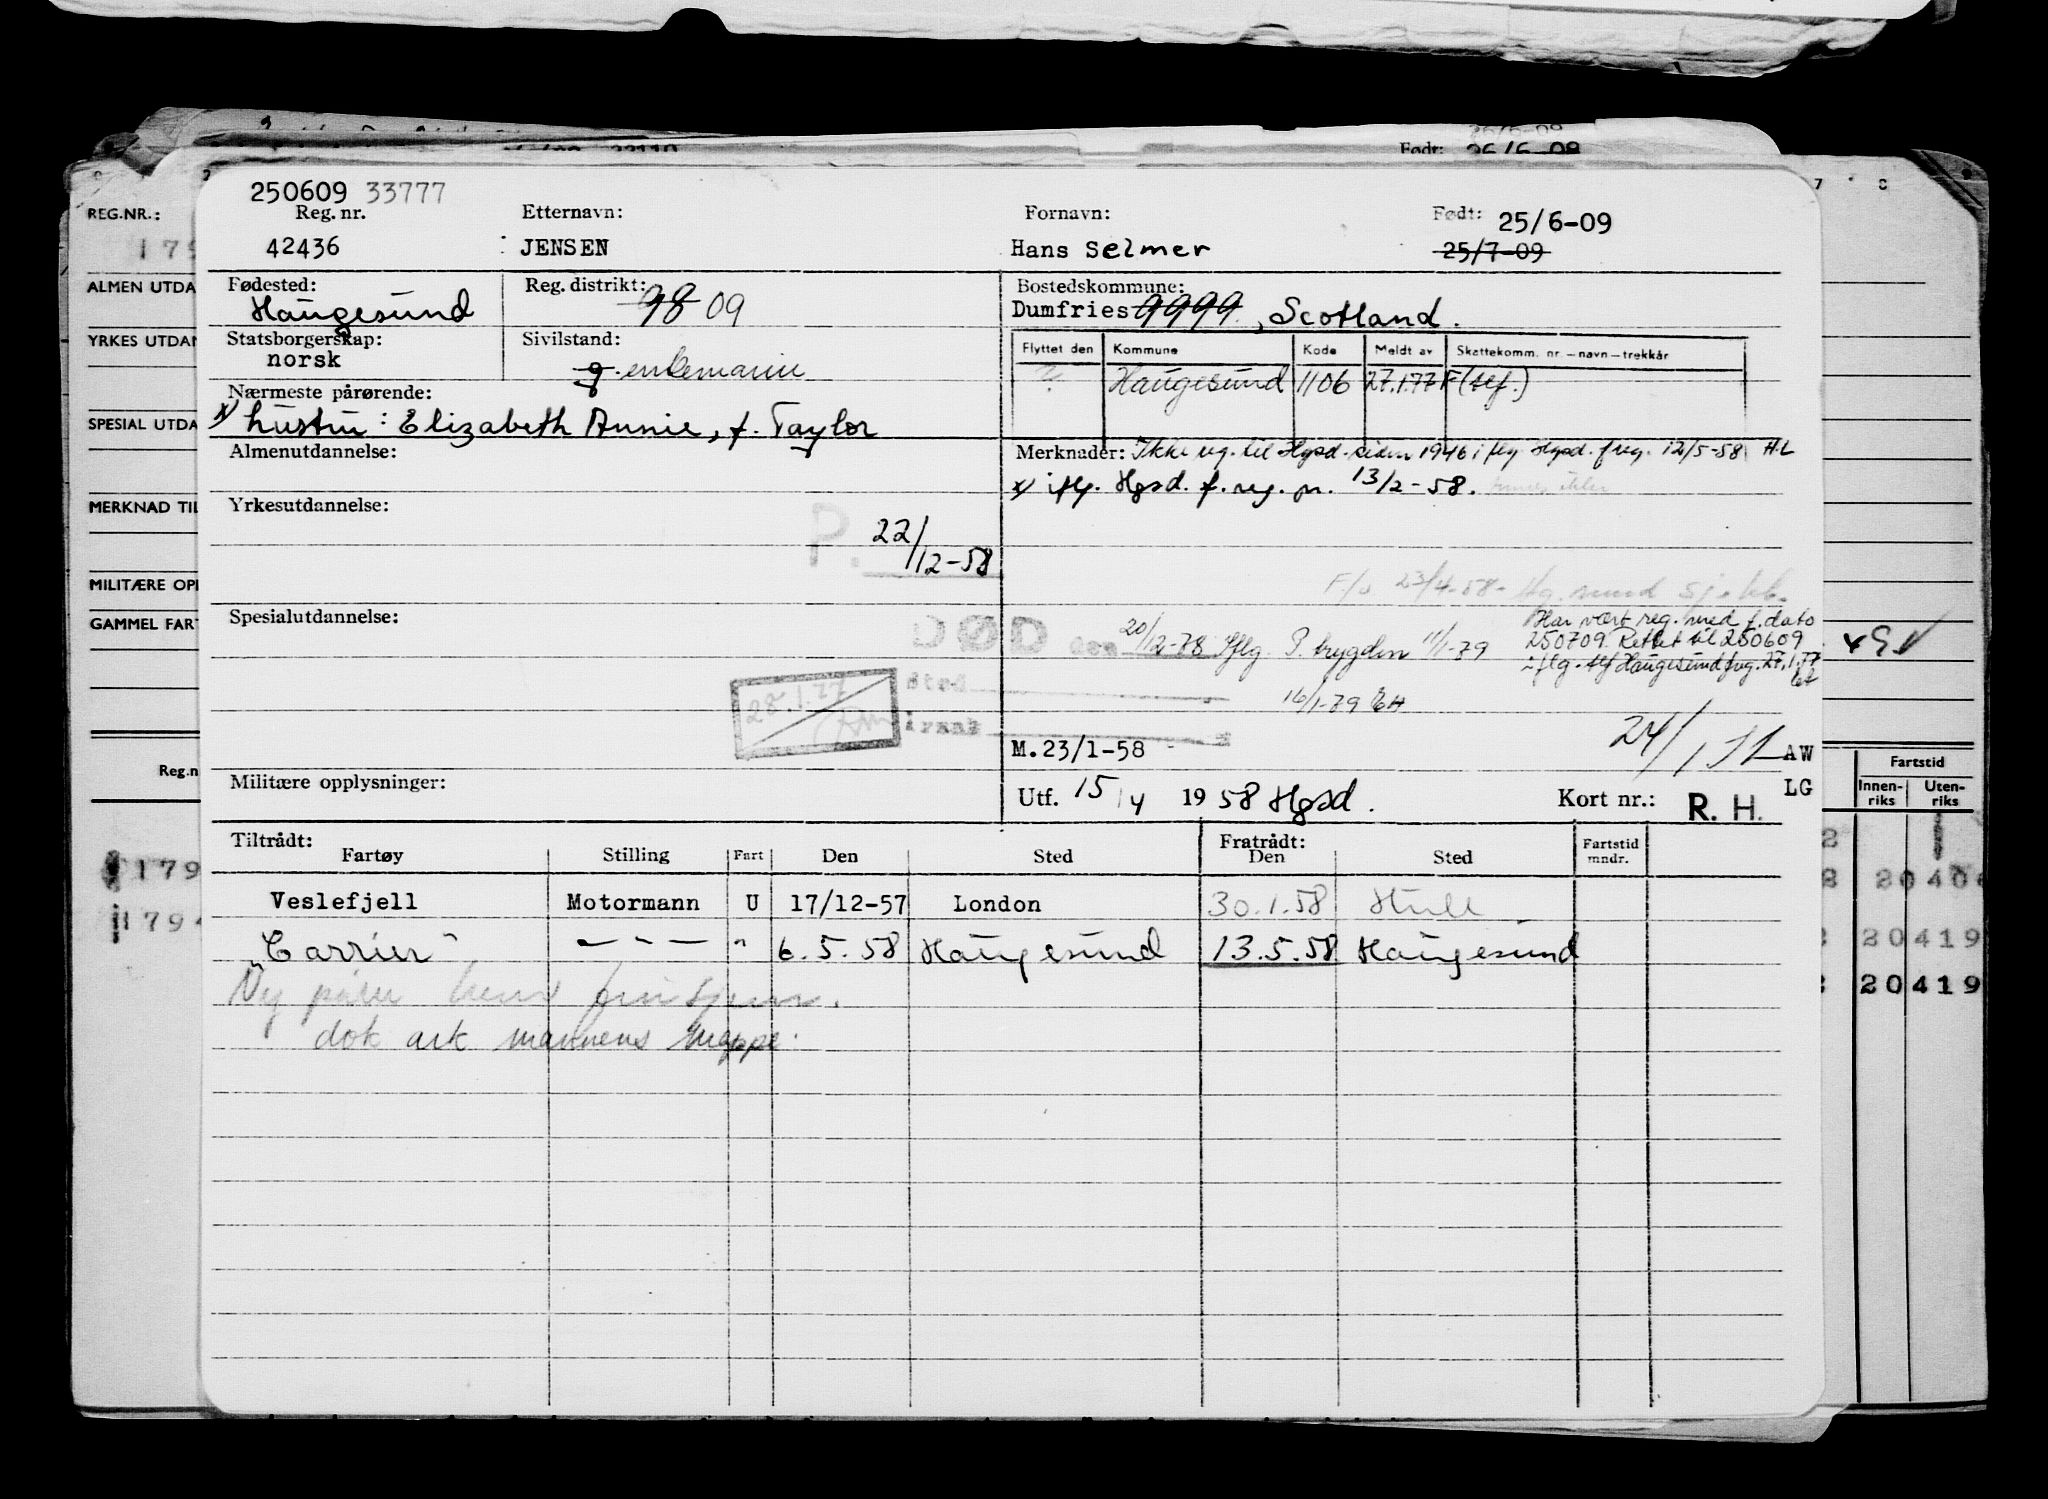 Født: 26/6-09
250609 33777
Reg. nr. Etternavn: Fornavn: Født: 25/6-09
42436 JENSEN Hans Selmer 25/7-09
Fødested: Reg. distrikt: Bostedskommune:
Haugesund 98 09 Dumfries 9999, Scotland.
Statsborgerskap: Sivilstand:
norsk g. enkemann
Flyttet den Kommune Kode Meldt av Skattekomm. nr. – navn – trekkår
? Haugesund 1106 27.1.77 F (tlf.)
Nærmeste pårørende:
x) hustru: Elizabeth Annie, f. Taylor
Almenutdannelse:
Merknader: Ikke reg. til Hgsd. siden 1946 iflg. Hgsd. freg. 12/5-58 H.L
x) iflg. Hgsd. f. reg. pr. 13/2-58.
Yrkesutdannelse:
P. 22/12-58
F/o 23/4-58-
Spesialutdannelse:
DØD den 20/12-78 Iflg. P. trygden 11/1-79
Har vært reg. med f. dato
250709. Rettet til 250609
iflg. tlf Haugesund freg. 27.1.77
Sted
16/1-79 EH
28.1.77
M.23/1-58
AW
Militære opplysninger:
Utf. 15/4 1958 Hgsd. Kort nr.: R. H.
LG
Tiltrådt: Fratrådt:
Fartøy Stilling Fart Den Sted Den Sted Fartstid mndr.
Veslefjell Motormann U 17/12-57 London 30.1.58 Hull
"Carrier" — " — " 6.5.58 Haugesund 13.5.58 Haugesund
dok ark mannens mappe.
REG.NR.:
179
ALMEN UTDA
YRKES UTDAN
SPESIAL UTDA
MERKNAD TIL
MILITÆRE OPP
GAMMEL FART
Reg.n
179
1794
7 8
Fartstid
Innen-riks Uten-riks
20 40
20 419
20 419